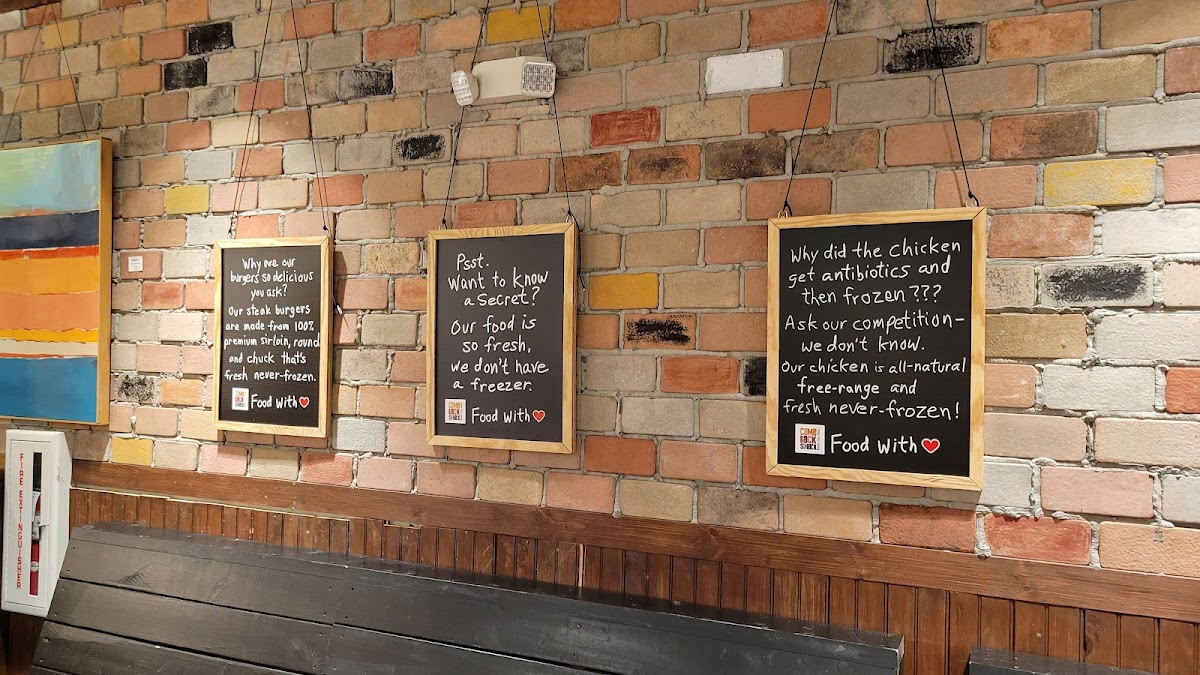 Why are our
burgers so delicious
you ask?
Our steak burgers
are made from 100%
premium sirloin, round
and chuck that's
fresh never-frozen.
COMB
BACK
SHACK
Food With
Psst.
Want to know
a secret?
Our food is
so fresh,
we don't have
a freezer.
COMB
BACK
SHACK
Food With
Why did the chicken
get antibiotics and
then frozen???
Ask our competition-
we don't know.
Our chicken is all-natural
free-range and
fresh never-frozen!
COMB
BACK
SHACK
Food With
FIRE EXTINGUISHER